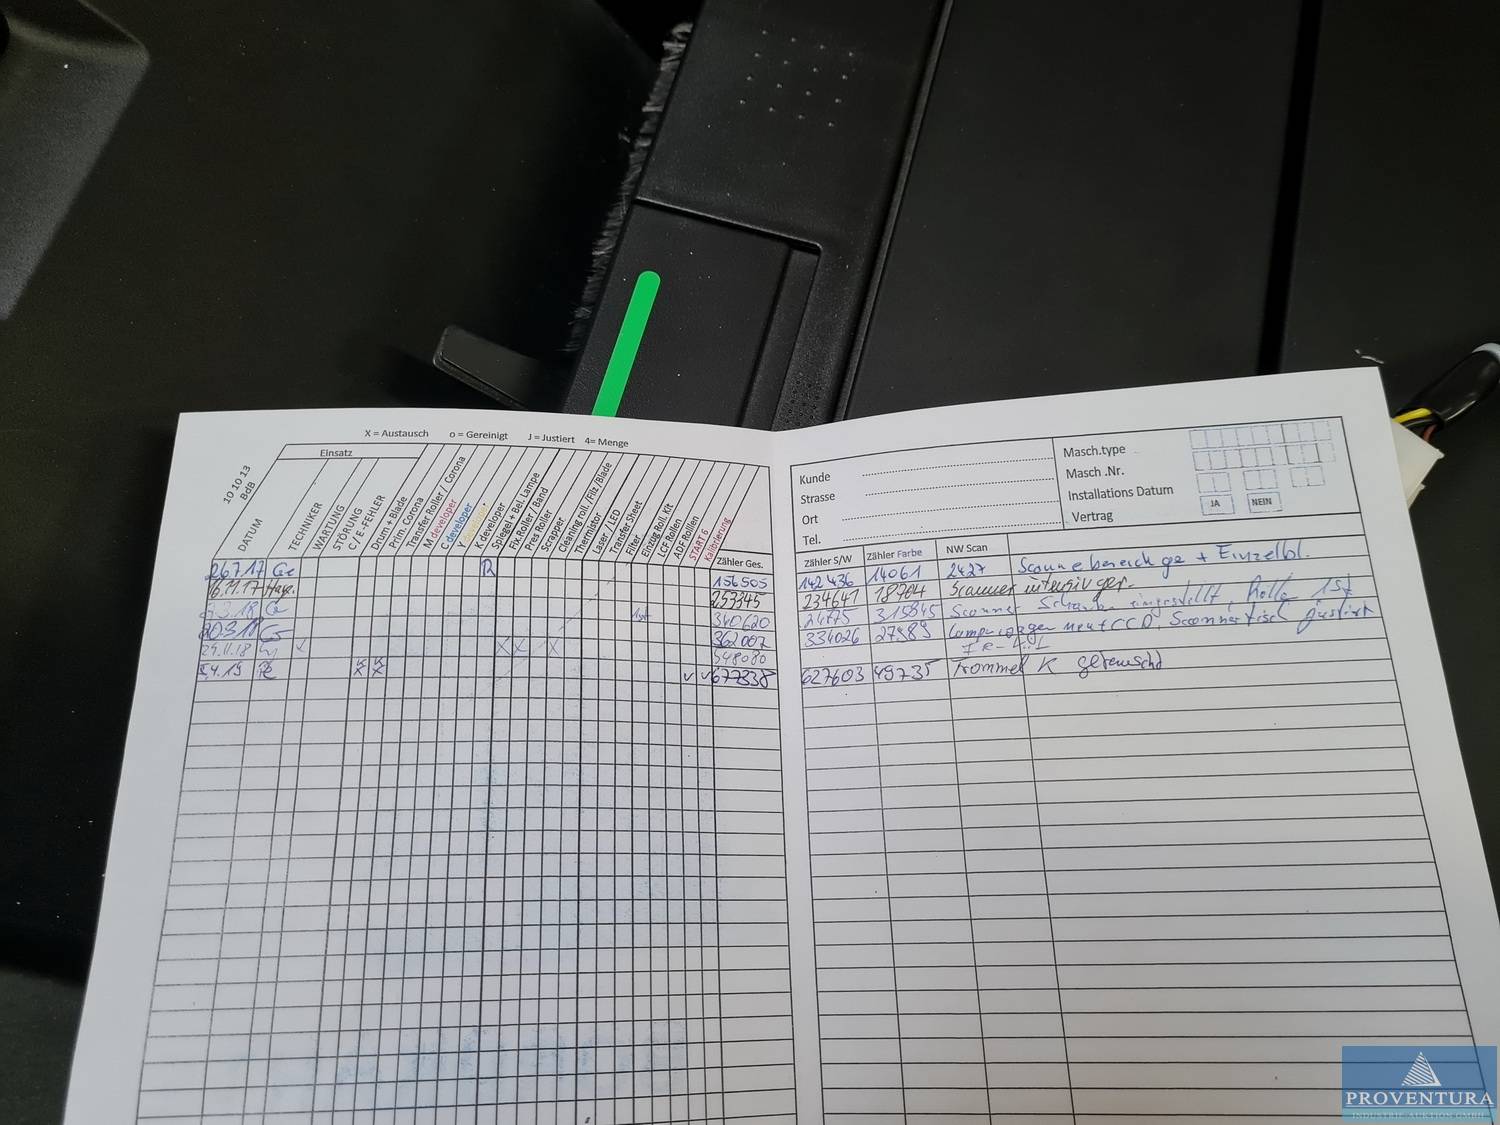 X = Austausch o = Gereinigt J = Justiert 4= Menge
10 10 13
BdB
Einsatz
DATUM
TECHNIKER
WARTUNG
STÖRUNG
C / E-FEHLER
Drum + Blade
Prim. Corona
Transfer Roller / Corona
M developer
C developer
Y
K developer
Spiegel + Bel. Lampe
Fix Roller / Band
Pres Roller
Scrapper
Cleaning roll./Filz /Blade
Thermistor
Laser / LED
Transfer Sheet
Filter
Einzug Roll. Kit
LCF Rollen
ADF Rollen
START 6
Kalibrierung
Zähler Ges.
26.7.17 Ge 156505
16.11.17 253345
340620
20.3.18 362007
29.11.18 548080
5.4.19 677338
Kunde
Strasse
Ort
Tel.
Masch.type
Masch .Nr.
Installations Datum
Vertrag JA NEIN
Zähler S/W Zähler Farbe NW Scan
142436 14061 2427 Scannebereich ge + Einzelbl.
234641 18704 Scanner intensiv ger.
24775 315845 Scanner eingestellt, Rolle
334026 27989 neu CCD, Scannertisch justiert
627603 49735 Trommel K getauscht
PROVENTURA
INDUSTRIE-AUKTION GMBH